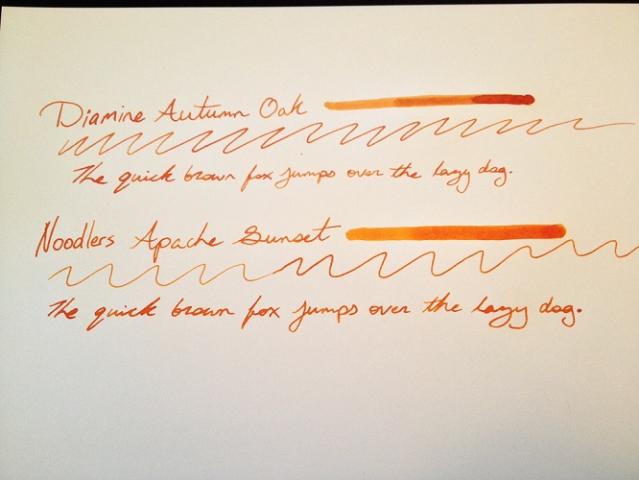 Diamine Autumn Oak
The quick brown fox jumps over the lazy dog.
Noodlers Apache Sunset
The quick brown fox jumps over the lazy dog.